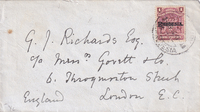 G. J. Richards Esq.
c/o Messrs Govett & Co.
6. Throgmorton Street
England London E.C.